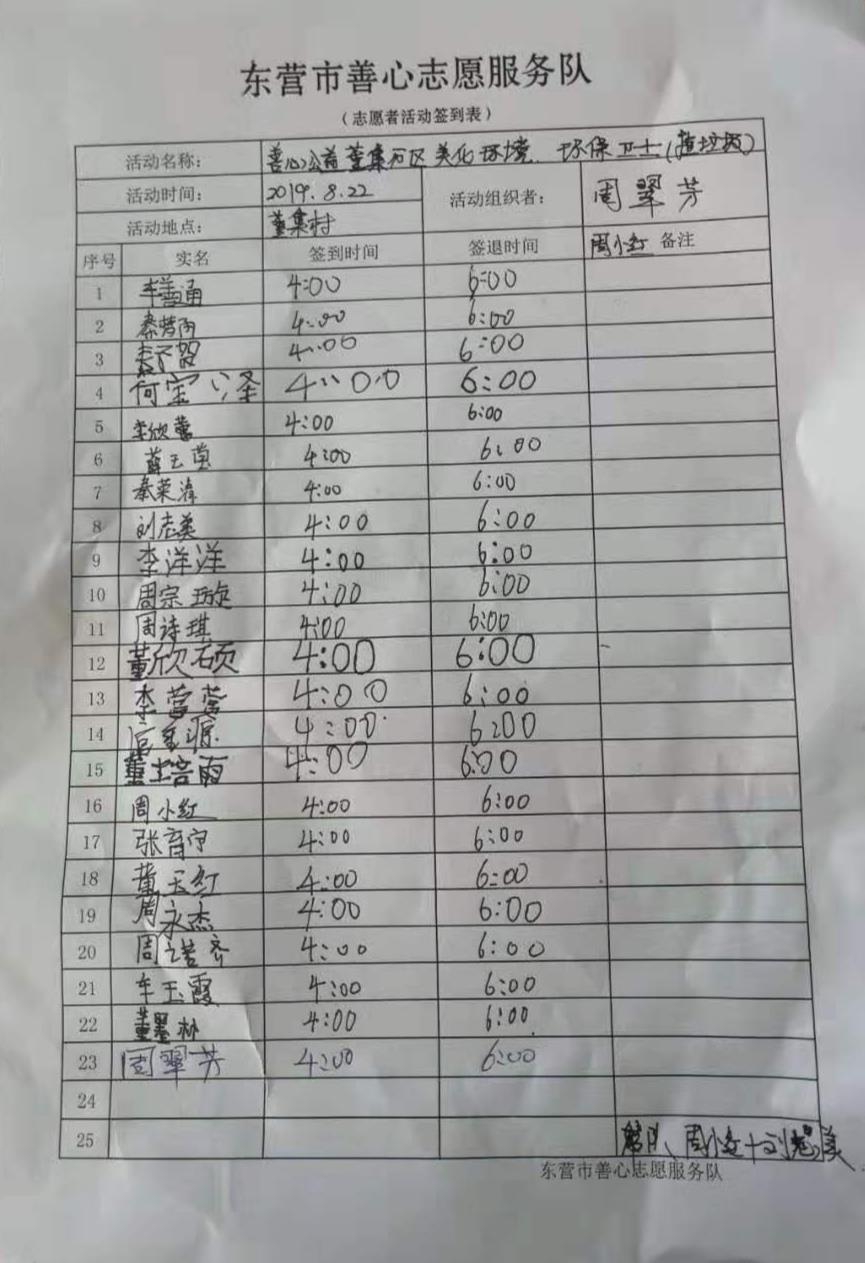 东营市善心志愿服务队
（志愿者活动签到表）
活动名称： 善心公益董集社区美化环境、环保卫士（捡垃圾）
活动时间： 2019.8.22 活动组织者： 周翠芳
活动地点： 董集村
序号 实名 签到时间 签退时间 周小红 备注
1 4:00 6:00
2 4:00 6:00
3 4:00 6:00
4 何宝泽 4:00 6:00
5 李欣蕾 4:00 6:00
6 薛玉 4:00 6:00
7 秦荣 4:00 6:00
8 刘志美 4:00 6:00
9 李洋洋 4:00 6:00
10 周宗璇 4:00 6:00
11 周诗琪 4:00 6:00
12 董欣硕 4:00 6:00
13 李营营 4:00 6:00
14 源 4:00 6:00
15 董培雨 4:00 6:00
16 周小红 4:00 6:00
17 张育宁 4:00 6:00
18 董玉红 4:00 6:00
19 周永杰 4:00 6:00
20 周 4:00 6:00
21 车玉霞 4:00 6:00
22 董墨林 4:00 6:00
23 周翠芳 4:00 6:00
24
25 带队、周小红+刘志美
东营市善心志愿服务队